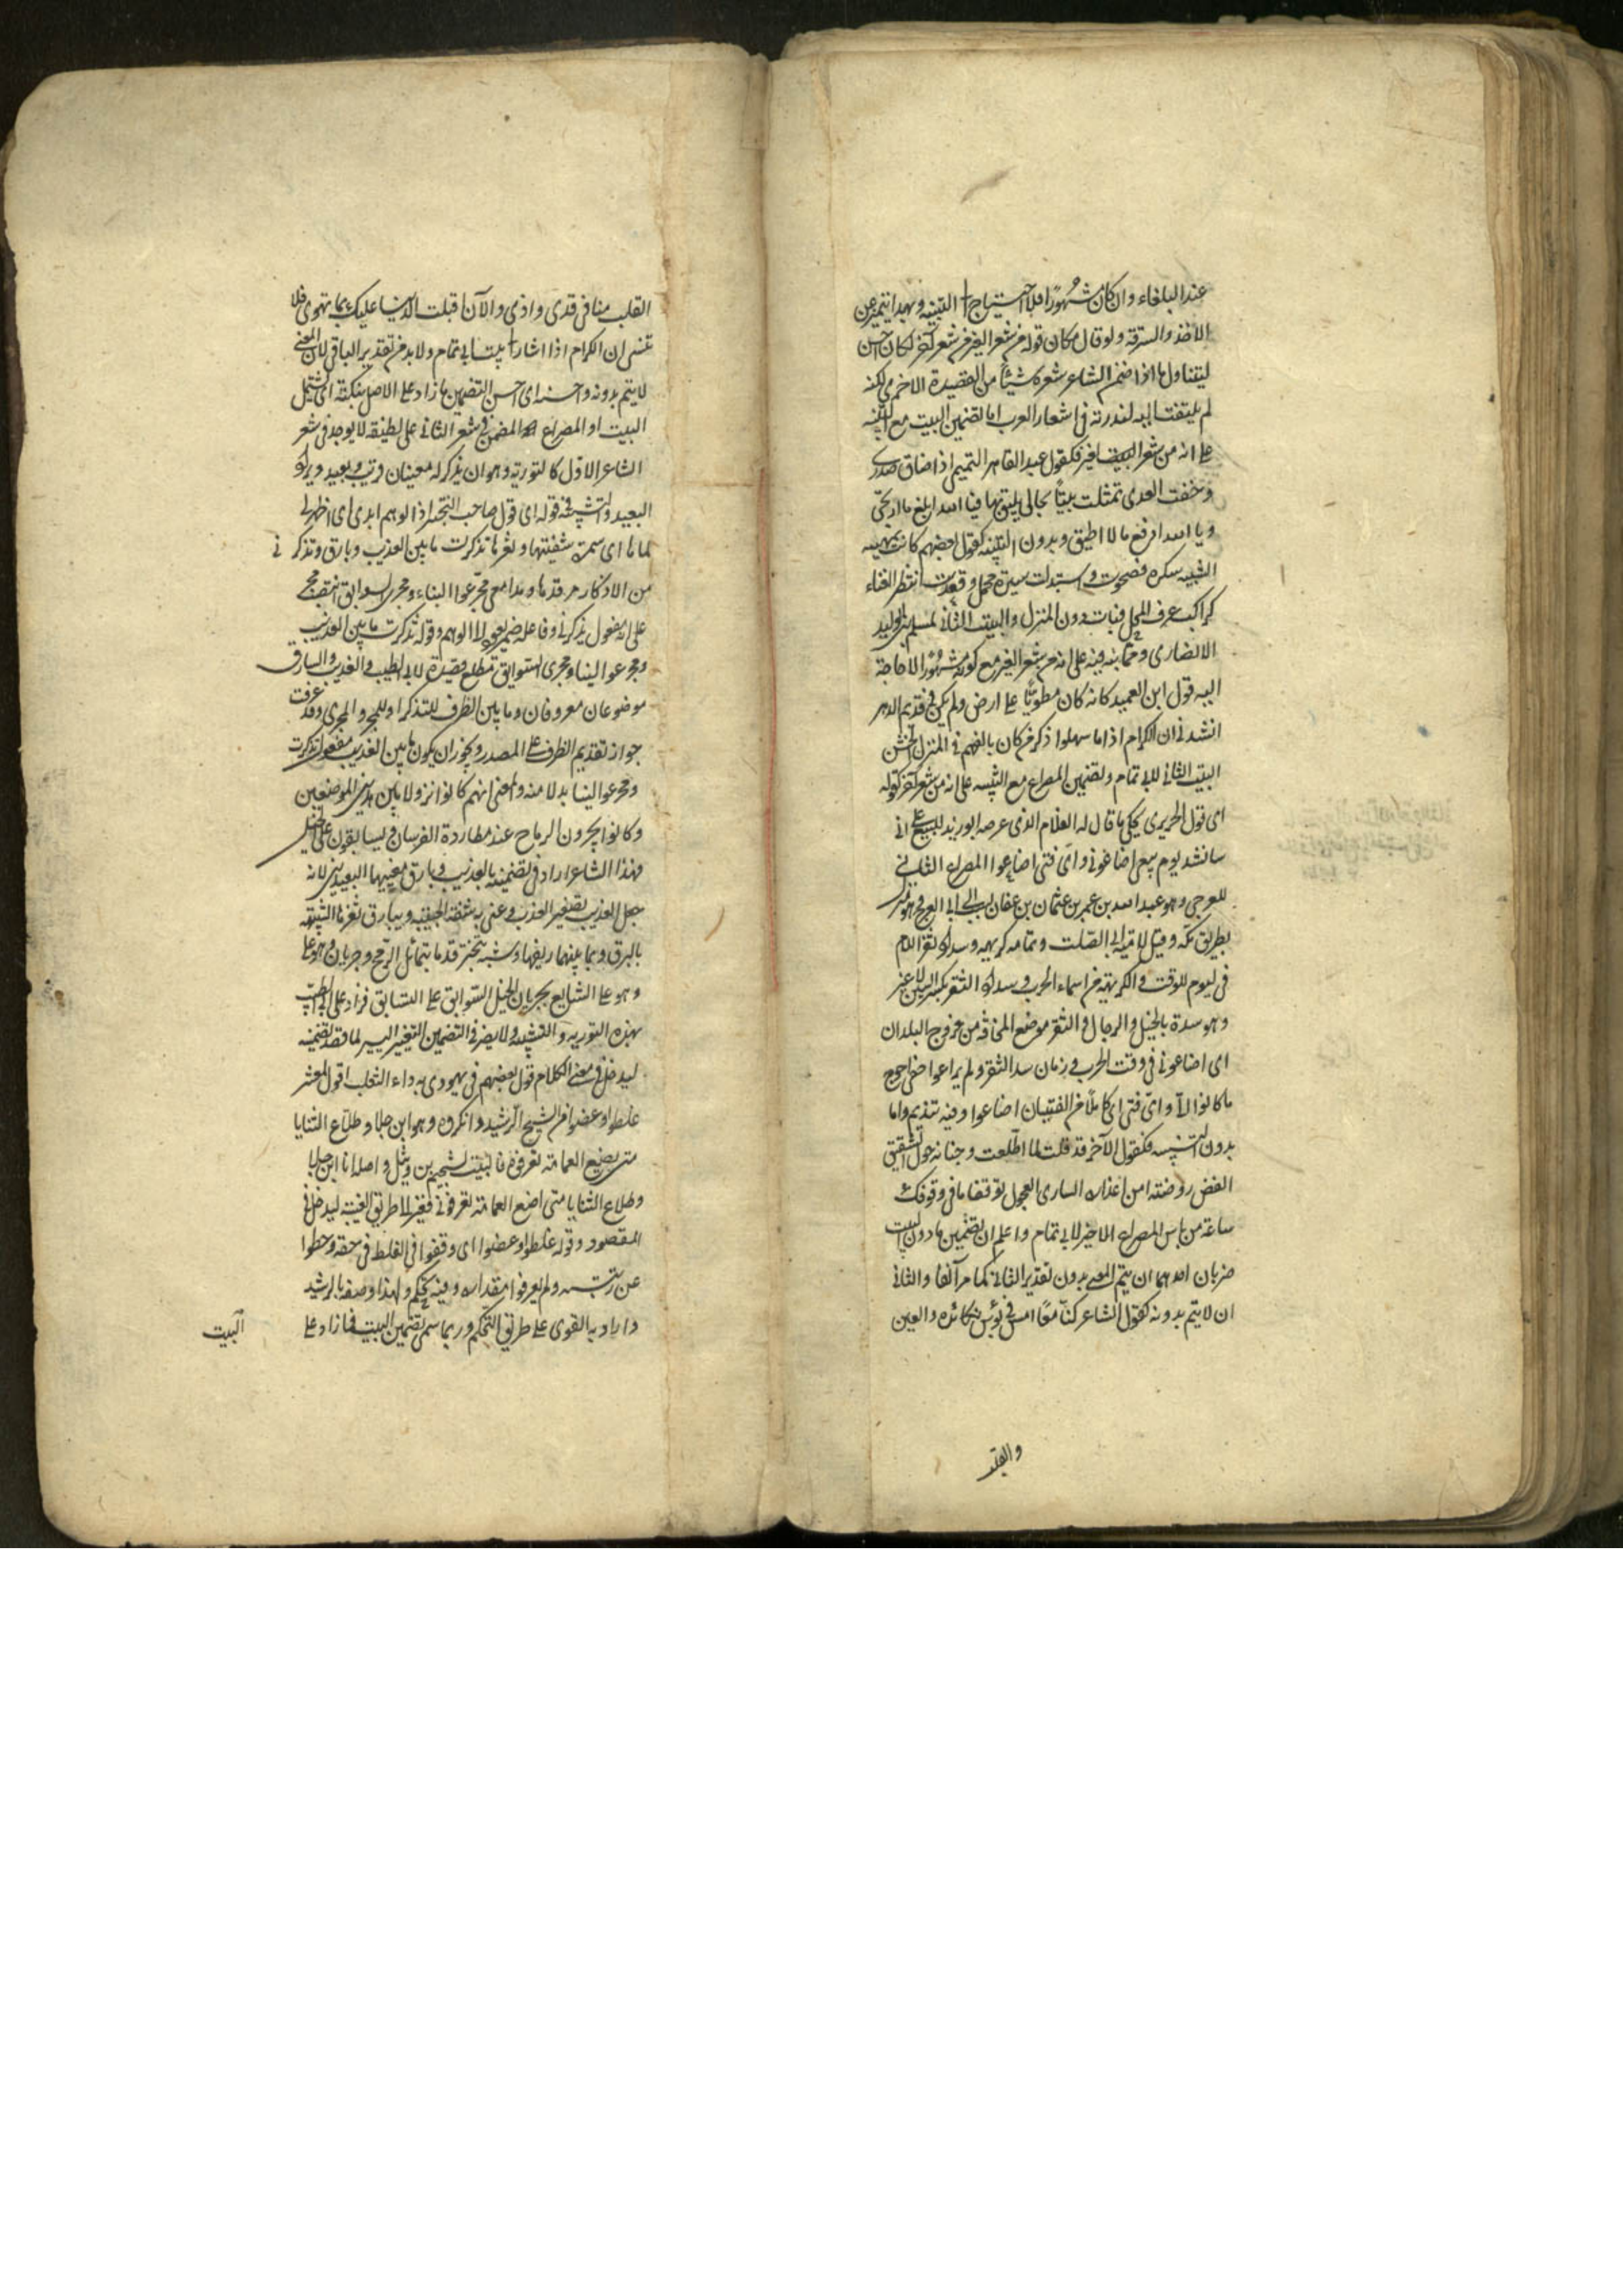 عند البلغاء وان كان مشهورا فلا احتياج الى التنبيه وبهذا يتميز عن
الاخذ والسرقة ولو قال مكان قوله من شعر الغير من شعر آخر لكان احسن
ليتناول ما اذا ضمن الشاعر شعره شيئا من القصيدة الاخرى لكنه
لم يلتفت اليه لندرته فى اشعار العرب اما تضمين البيت مع التنبيه
على انه من شعر الغير فكقول عبد القاهر التميمى اذا ضاق صدرى
وخفت العدى تمثلت بيتا بحالى يليق فبالله ابلغ ما ارتجى
وبالله ادفع ما لا اطيق وبدون التنبيه كقول بعضهم كانت بلهنية
الشبيبة سكرة فصحوت واستبدلت سيرة مجمل وقعدت انتظر الفناء
كراكب عرف المحل فبات دون المنزل والبيت الثانى لمسلم بن الوليد
الانصارى ومما نبه فيه على انه من شعر الغير مع كونه مشهورا لا حاجة
اليه قول ابن العميد كانه كان مطويا على ارض ولم يكن فى قديم الدهر
انشدنى ان الكرام اذا ما سهلوا ذكروا من كان يالفهم فى المنزل الخشن
البيت الثانى لابى تمام وتضمين المصراع مع التنبيه على انه من شعر آخر كقوله
اى قول الحريرى يحكى ما قال له الغلام الذى عرضه ابو زيد للبيع على انى
سانشد يوم بيعى اضاعونى واى فتى اضاعوا المصراع الثانى
للعرجى وهو عبد الله بن عمر بن عثمان بن عفان نسب الى العرج وهو منزل
بطريق مكة وقيل لامية بن ابى الصلت وتمامه ليوم كريهة وسداد ثغر اللام
فى ليوم للوقت والكريهة من اسماء الحرب وسداد الثغر بكسر السين لا غير
وهو سده بالخيل والرجال والثغر موضع المخافة من فروج البلدان
اى اضاعونى فى وقت الحرب وزمان سد الثغر ولم يراعوا حقى احوج
ما كانوا الى واى فتى اى كاملا من الفتيان اضاعوا وفيه تنديم واما
بدون التنبيه فكقول الآخر قد قلت لما اطلعت وجناته حول الشقيق
الغض روضة آس اعذاره السارى العجول توقفا ما فى وقوفك
ساعة من باس المصراع الاخير لابى تمام واعلم ان تضمين ما دون البيت
ضربان احدهما ان يتم المعنى بدون تقدير الباقى كما مر آنفا والثانى
ان لا يتم بدونه كقول الشاعر كنا معا امس فى بؤس نكابده والعين
والقلب
القلب منا فى قذى واذى والآن اقبلت الدنيا عليك بما تهوى فلا
تنسنى ان الكرام اذا اشار الى بيت ابى تمام ولا بد من تقدير الباقى لان المعنى
لا يتم بدونه واحسنه اى احسن التضمين ما زاد على الاصل بنكتة اى يشتمل
البيت او المصراع المضمن فى شعر الثانى على لطيفة لا يوجد فى شعر
الشاعر الاول كالتورية وهو ان يذكر لفظ له معنيان قريب وبعيد ويراد
البعيد والتشبيه فى قوله اى قول صاحب التحبير اذا الوهم ابدى اى اظهر لى
لماها اى سمرة شفتيها وثغرها تذكرت ما بين العذيب وبارق وتذكرنى
من الاذكار من قدها ومدامعى مجر عوالينا ومجرى السوابق انتصب مجر
على انه مفعول يذكرنى وفاعله ضمير يعود الى الوهم وقوله تذكرت ما بين العذيب
ومجر عوالينا ومجرى السوابق مطلع قصيدة لابى الطيب والعذيب والبارق
موضوعان معروفان وما بين الظرف للتذكر او للمجر والمجرى وقد عرفت
جواز تقديم الظرف على المصدر ويجوز ان يكون ما بين العذيب مفعول تذكرت
ومجر عوالينا بدلا منه والمعنى انهم كانوا نزولا بين هذين الموضعين
وكانوا يجرون الرماح عند مطاردة الفرسان ويسابقون على الخيل
فهذا الشاعر اراد فى تضمينه بالعذيب وبارق معنييهما البعيدين لانه
جعل العذيب تصغير العذب وعنى به شفة الحبيبة وببارق ثغرها الشبيه
بالبرق وبما بينهما ريقها وشبه تبختر قدها بتمايل الرمح وجريان دموعه
وهو على التتابع بجريان الخيل السوابق على التسابق فزاد على ابى الطيب
بهذه التورية والتشبيه ولا يضر فى التضمين التغيير اليسير لما قصد تضمينه
ليدخل فى معنى الكلام قول بعضهم فى يهودى به داء الثعلب اقول لمعشر
غلطوا وغضوا من الشيخ الرشيد وانكروه وهو ابن جلا وطلاع الثنايا
متى يضع العمامة تعرفوه فالبيت لسحيم بن وثيل واصله انا ابن جلا
وطلاع الثنايا متى اضع العمامة تعرفونى فغيره الى طريق الغيبة ليدخل فى
المقصود وقوله غلطوا وغضوا اى وقفوا فى الغلط فى حقه وحطوا
عن رتبته ولم يعرفوا مقداره وفيه تهكم ولهذا وصفه بالرشيد
واراد به الغوى على طريق التهكم وربما سمى تضمين البيت فما زاد على
البيت